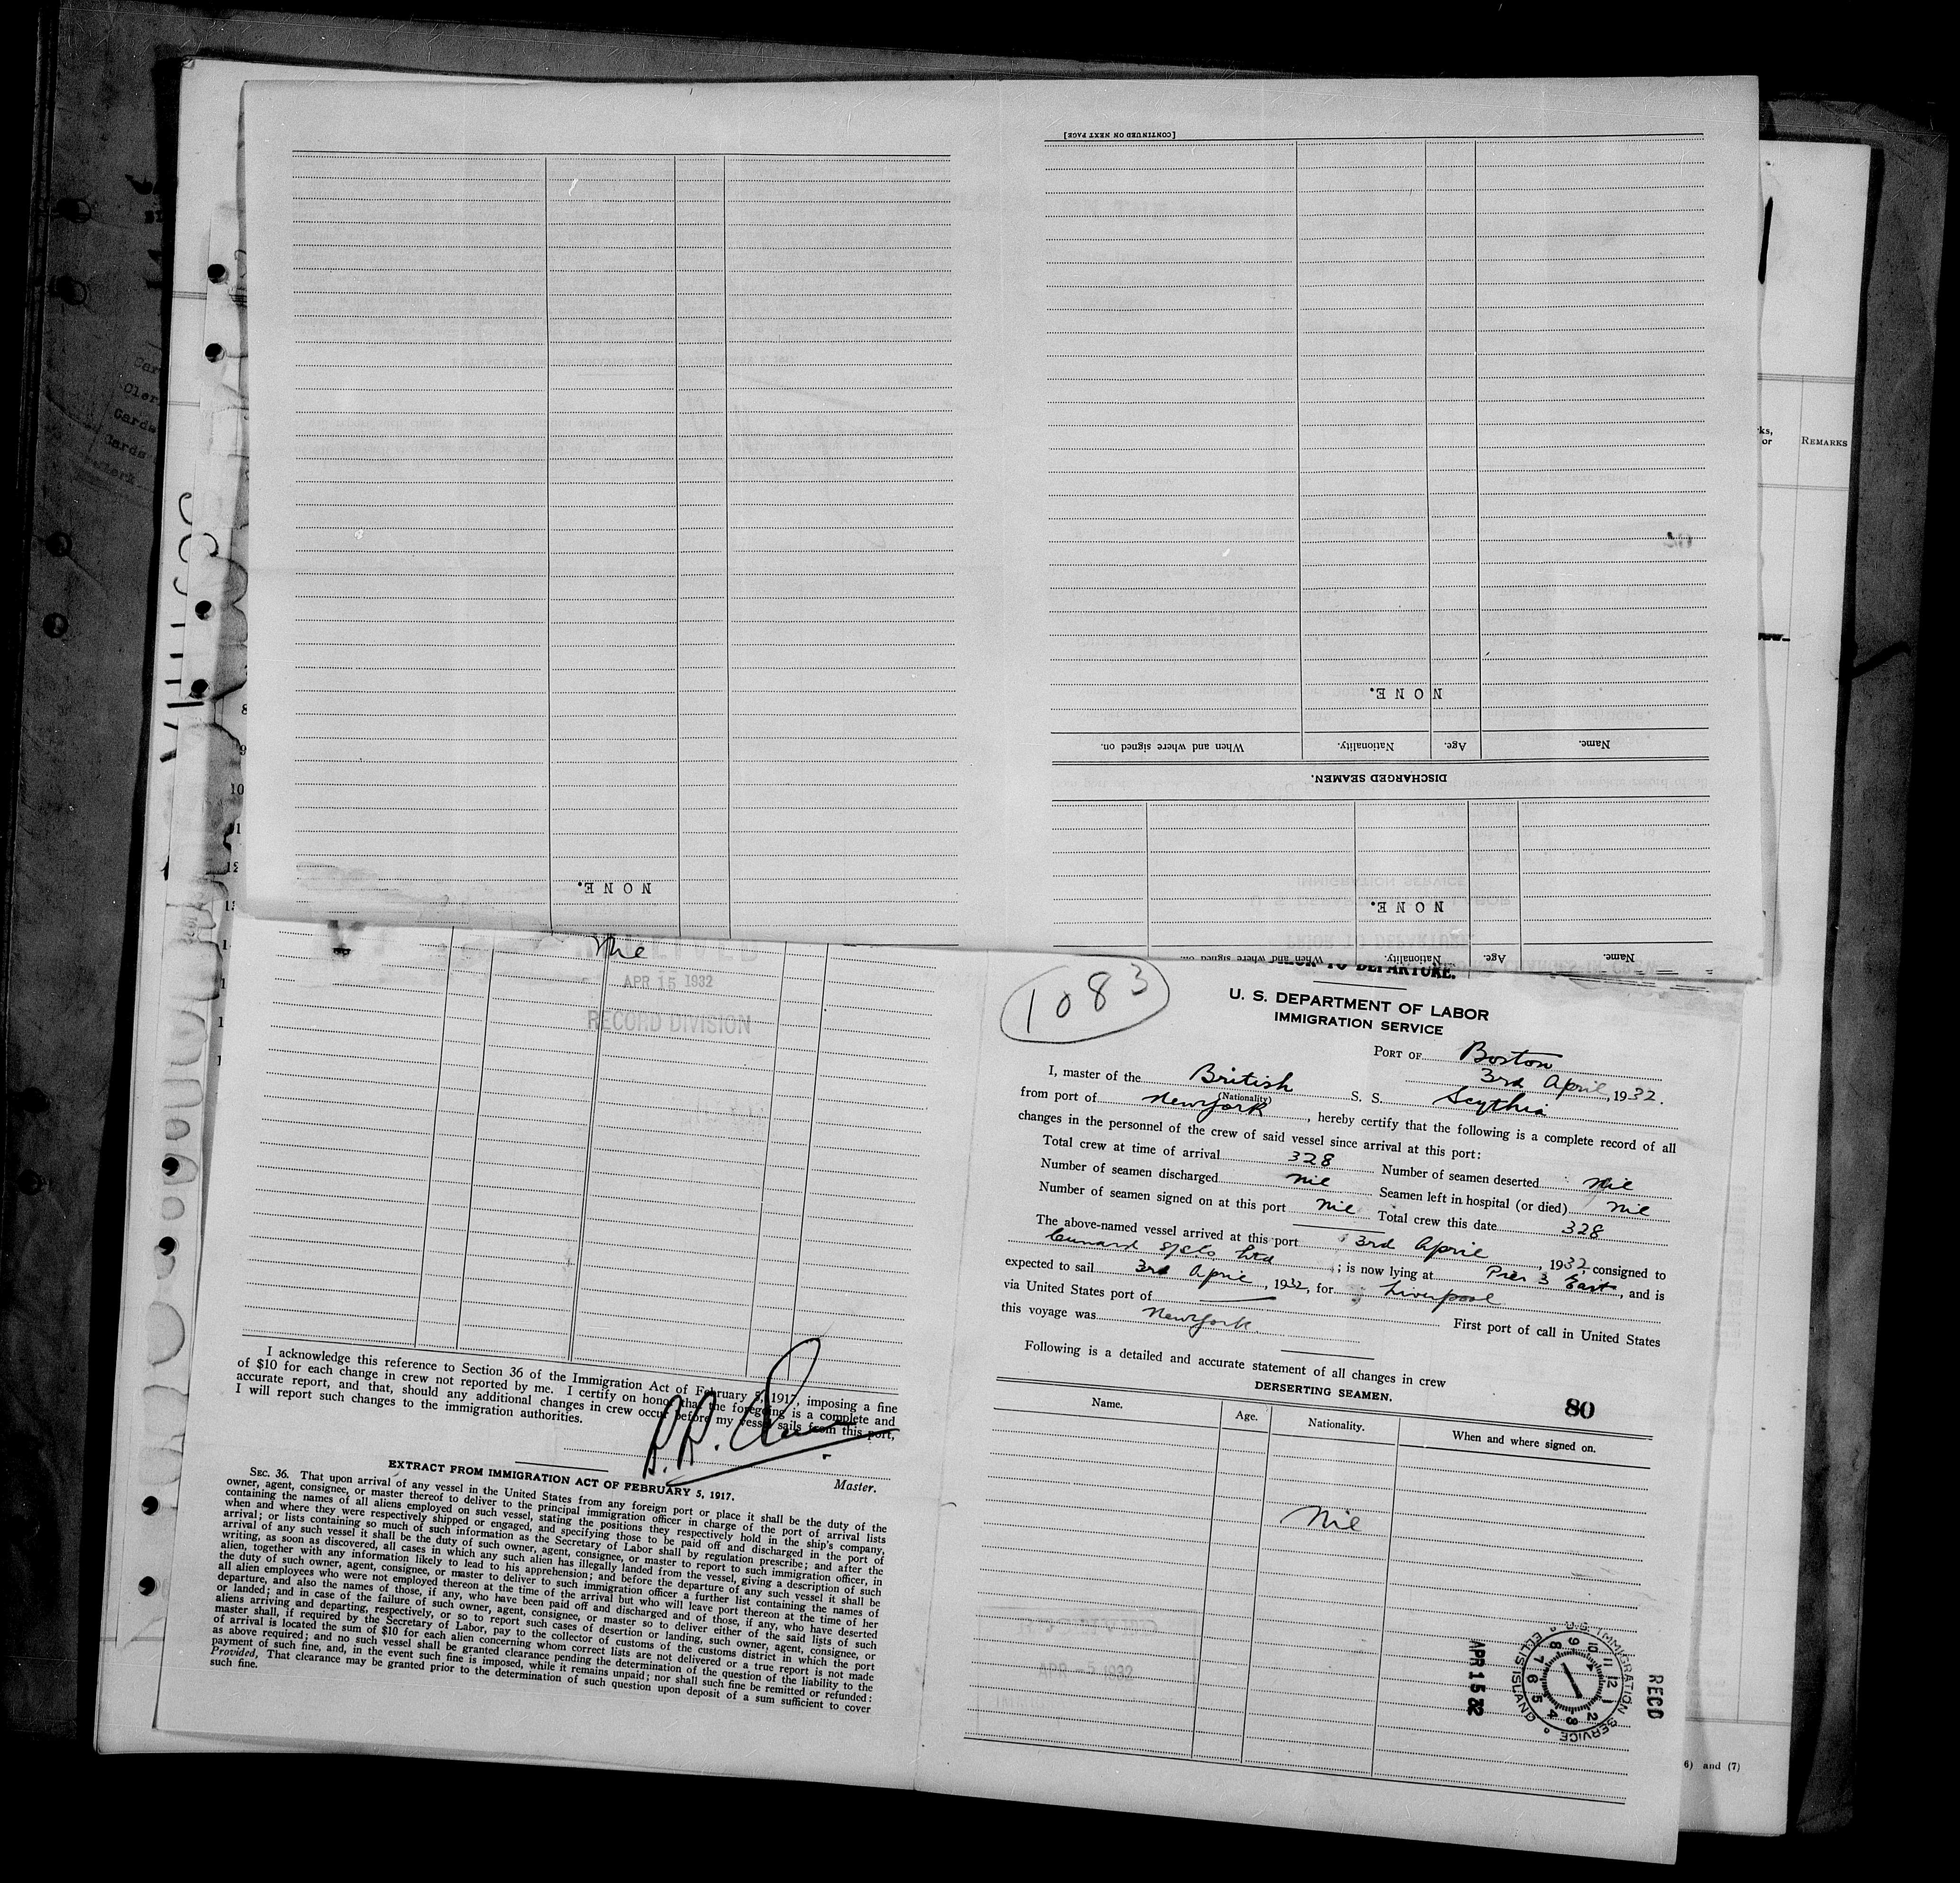 [CONTINUED ON NEXT PAGE]
NONE.
When and where signed on. Nationality. Age. Name.
DISCHARGED SEAMEN.
NONE.
NONE.
When and where signed on. Nationality. Age. Name.
REMARKS
Nil
APR 15 1932
RECORD DIVISION
I acknowledge this reference to Section 36 of the Immigration Act of February 5, 1917, imposing a fine
of $10 for each change in crew not reported by me. I certify on honor that the foregoing is a complete and
accurate report, and that, should any additional changes in crew occur before my vessel sails from this port,
I will report such changes to the immigration authorities.
Master.
EXTRACT FROM IMMIGRATION ACT OF FEBRUARY 5, 1917.
SEC. 36. That upon arrival of any vessel in the United States from any foreign port or place it shall be the duty of the
owner, agent, consignee, or master thereof to deliver to the principal immigration officer in charge of the port of arrival lists
containing the names of all aliens employed on such vessel, stating the positions they respectively hold in the ship's company,
when and where they were respectively shipped or engaged, and specifying those to be paid off and discharged in the port of
arrival; or lists containing so much of such information as the Secretary of Labor shall by regulation prescribe; and after the
arrival of any such vessel it shall be the duty of such owner, agent, consignee, or master to report to such immigration officer, in
writing, as soon as discovered, all cases in which any such alien has illegally landed from the vessel, giving a description of such
alien, together with any information likely to lead to his apprehension; and before the departure of any such vessel it shall be
the duty of such owner, agent, consignee, or master to deliver to such immigration officer a further list containing the names of
all alien employees who were not employed thereon at the time of the arrival but who will leave port thereon at the time of her
departure, and also the names of those, if any, who have been paid off and discharged and of those, if any, who have deserted
or landed; and in case of the failure of such owner, agent, consignee, or master so to deliver either of the said lists of such
aliens arriving and departing, respectively, or so to report such cases of desertion or landing, such owner, agent, consignee, or
master shall, if required by the Secretary of Labor, pay to the collector of customs of the customs district in which the port
of arrival is located the sum of $10 for each alien concerning whom correct lists are not delivered or a true report is not made
as above required; and no such vessel shall be granted clearance pending the determination of the question of the liability to the
payment of such fine, and, in the event such fine is imposed, while it remains unpaid; nor shall such fine be remitted or refunded:
Provided, That clearance may be granted prior to the determination of such question upon deposit of a sum sufficient to cover
such fine.
TO DEPARTURE.
1083
U. S. DEPARTMENT OF LABOR
IMMIGRATION SERVICE
PORT OF Boston
3rd April, 1932.
I, master of the British S. S. Scythia
(Nationality)
from port of Newyork, hereby certify that the following is a complete record of all
changes in the personnel of the crew of said vessel since arrival at this port:
Total crew at time of arrival 328 Number of seamen deserted Nil
Number of seamen discharged Nil Seamen left in hospital (or died) Nil
Number of seamen signed on at this port Nil Total crew this date 328
The above-named vessel arrived at this port 3rd April, 1932, consigned to
Cunard S/S Co Ltd; is now lying at Pier 3 East, and is
expected to sail 3rd April, 1932, for Liverpool
via United States port of First port of call in United States
this voyage was Newyork.
Following is a detailed and accurate statement of all changes in crew
DERSERTING SEAMEN.
80
Name. Age. Nationality. When and where signed on.
Nil
APR 15 32
U.S. IMMIGRATION SERVICE ELLIS ISLAND
RECD
6) and (7)